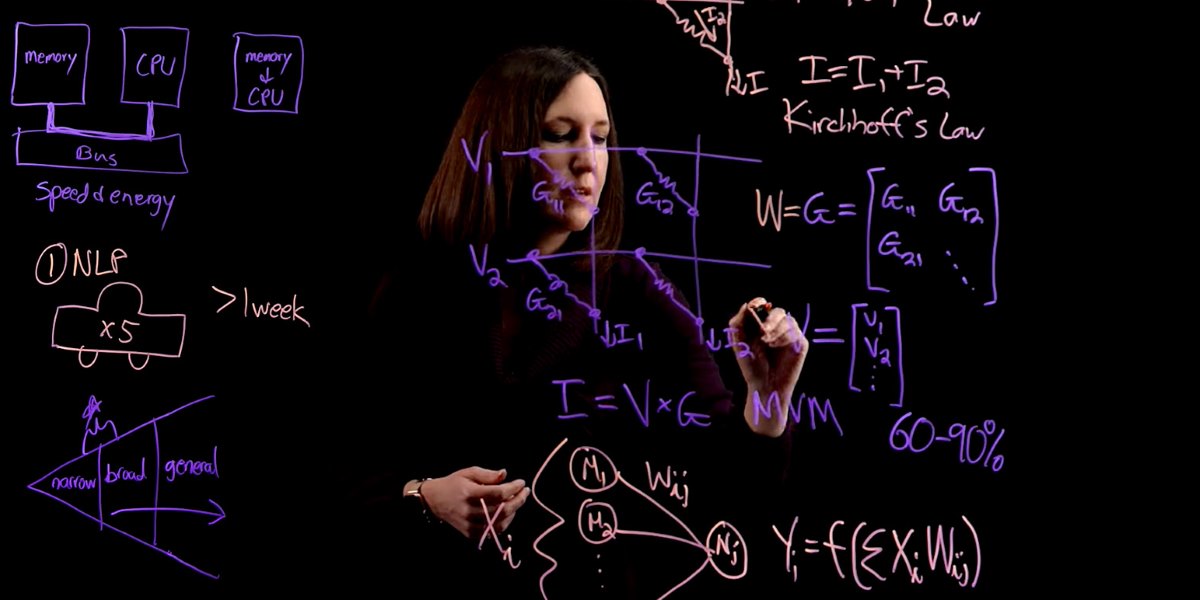 memory
CPU
memory
↓
CPU
Bus
Speed & energy
① NLP
x5
>1 week
narrow
broad
general
I₂
Law
↓I
I=I₁+I₂
Kirchhoff's Law
V₁
G₁₁
G₁₂
V₂
G₂₁
↓I₁
↓I₂
W=G=[G₁₁ G₁₂
G₂₁ ⋱]
V=[V₁
V₂
⋮]
I=V×G
MVM
60-90%
Xᵢ
M₁
M₂
⋮
Wᵢⱼ
Nⱼ
Yⱼ=f(ΣXᵢWᵢⱼ)